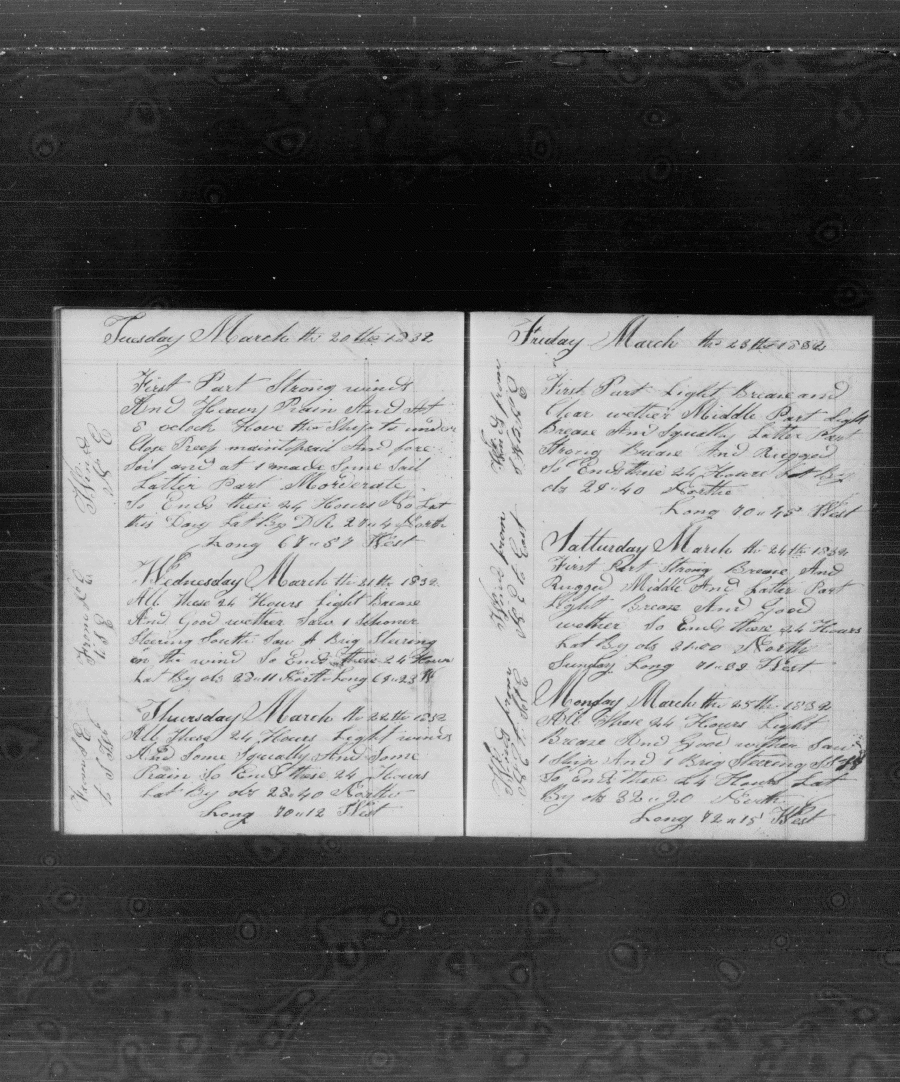 Tuesday March the 20 the 1832
First Part Strong winds
And Heavy Rain And At
8 oclock Hove the Ship to under
Close Reep maintopsail And fore
Sail and at 1 made Some Sail
Latter Part Morderate
So Ends these 24 Hours No Lat
this Day Lat By D R 27 " 4 North
Long 67 " 57 West
Wednesday March the 21 the 1832
All These 24 Hours Light Brease
And Good wether Saw 1 Schoner
Stering South Saw A Brig Stering
in the wind So Ends these 24 Hours
Lat By obs 28 " 11 North Long 68 " 23 W
Thursday March the 22 the 1832
All These 24 Hours Light winds
And Some Squally And Some
Rain So Ends these 24 Hours
Lat By obs 28 " 40 North
Long 70 " 12 West
Wind
From
From
Friday March the 23 the 1832
First Part Light Brease and
Clear wether Middle Part Light
Brease And Squally Latter Part
Strong Brease And Rugged
So Ends these 24 Hours Lat By
obs 29 " 40 North
Long 70 " 45 West
Satturday March the 24 the 1832
First Part Strong Brease And
Rugged Middle And Latter Part
Light Brease And Good
wether So Ends these 24 Hours
Lat By obs 31 " 00 North
Sunday Long 71 " 38 West
Monday March the 25 the 1832
All These 24 Hours Light
Brease And Good wether Saw
1 Ship And 1 Brig Stering
So Ends these 24 Hours Lat
By obs 32 " 20 North
Long 72 " 15 West
Wind from
Wind from
East
Wind from